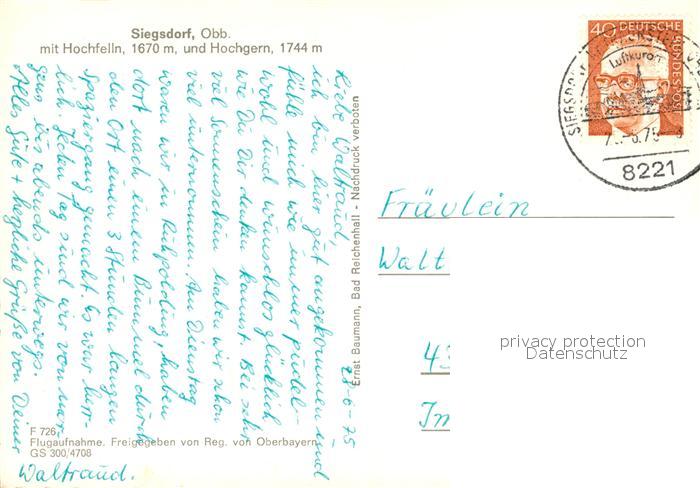 Siegsdorf, Obb.
mit Hochfelln, 1670 m, und Hochgern, 1744 m
28-6-75
Liebe Waltraud,
ich bin hier gut angekommen und
fühle mich wie immer pudel-
wohl und wunschlos glücklich
wie Du Dir denken kannst. Bei sehr
viel Sonnenschein haben wir schon
viel unternommen. Am Dienstag
waren wir in Ruhpolding, haben
dort nach einem Bummel durch
den Ort einen 3 Stunden langen
Spaziergang gemacht. Es war herr-
lich. Jeden Tag sind wir von mor-
gens bis abends unterwegs.
Alles Gute + herzliche Grüße von Deiner
Waltraud.
F 726
Flugaufnahme. Freigegeben von Reg. von Oberbayern
GS 300/4708
Ernst Baumann, Bad Reichenhall - Nachdruck verboten
40 DEUTSCHE
BUNDESPOST
SIEGSDORF
Luftkurort
8221
Fräulein
Walt
43
Im
privacy protection
Datenschutz